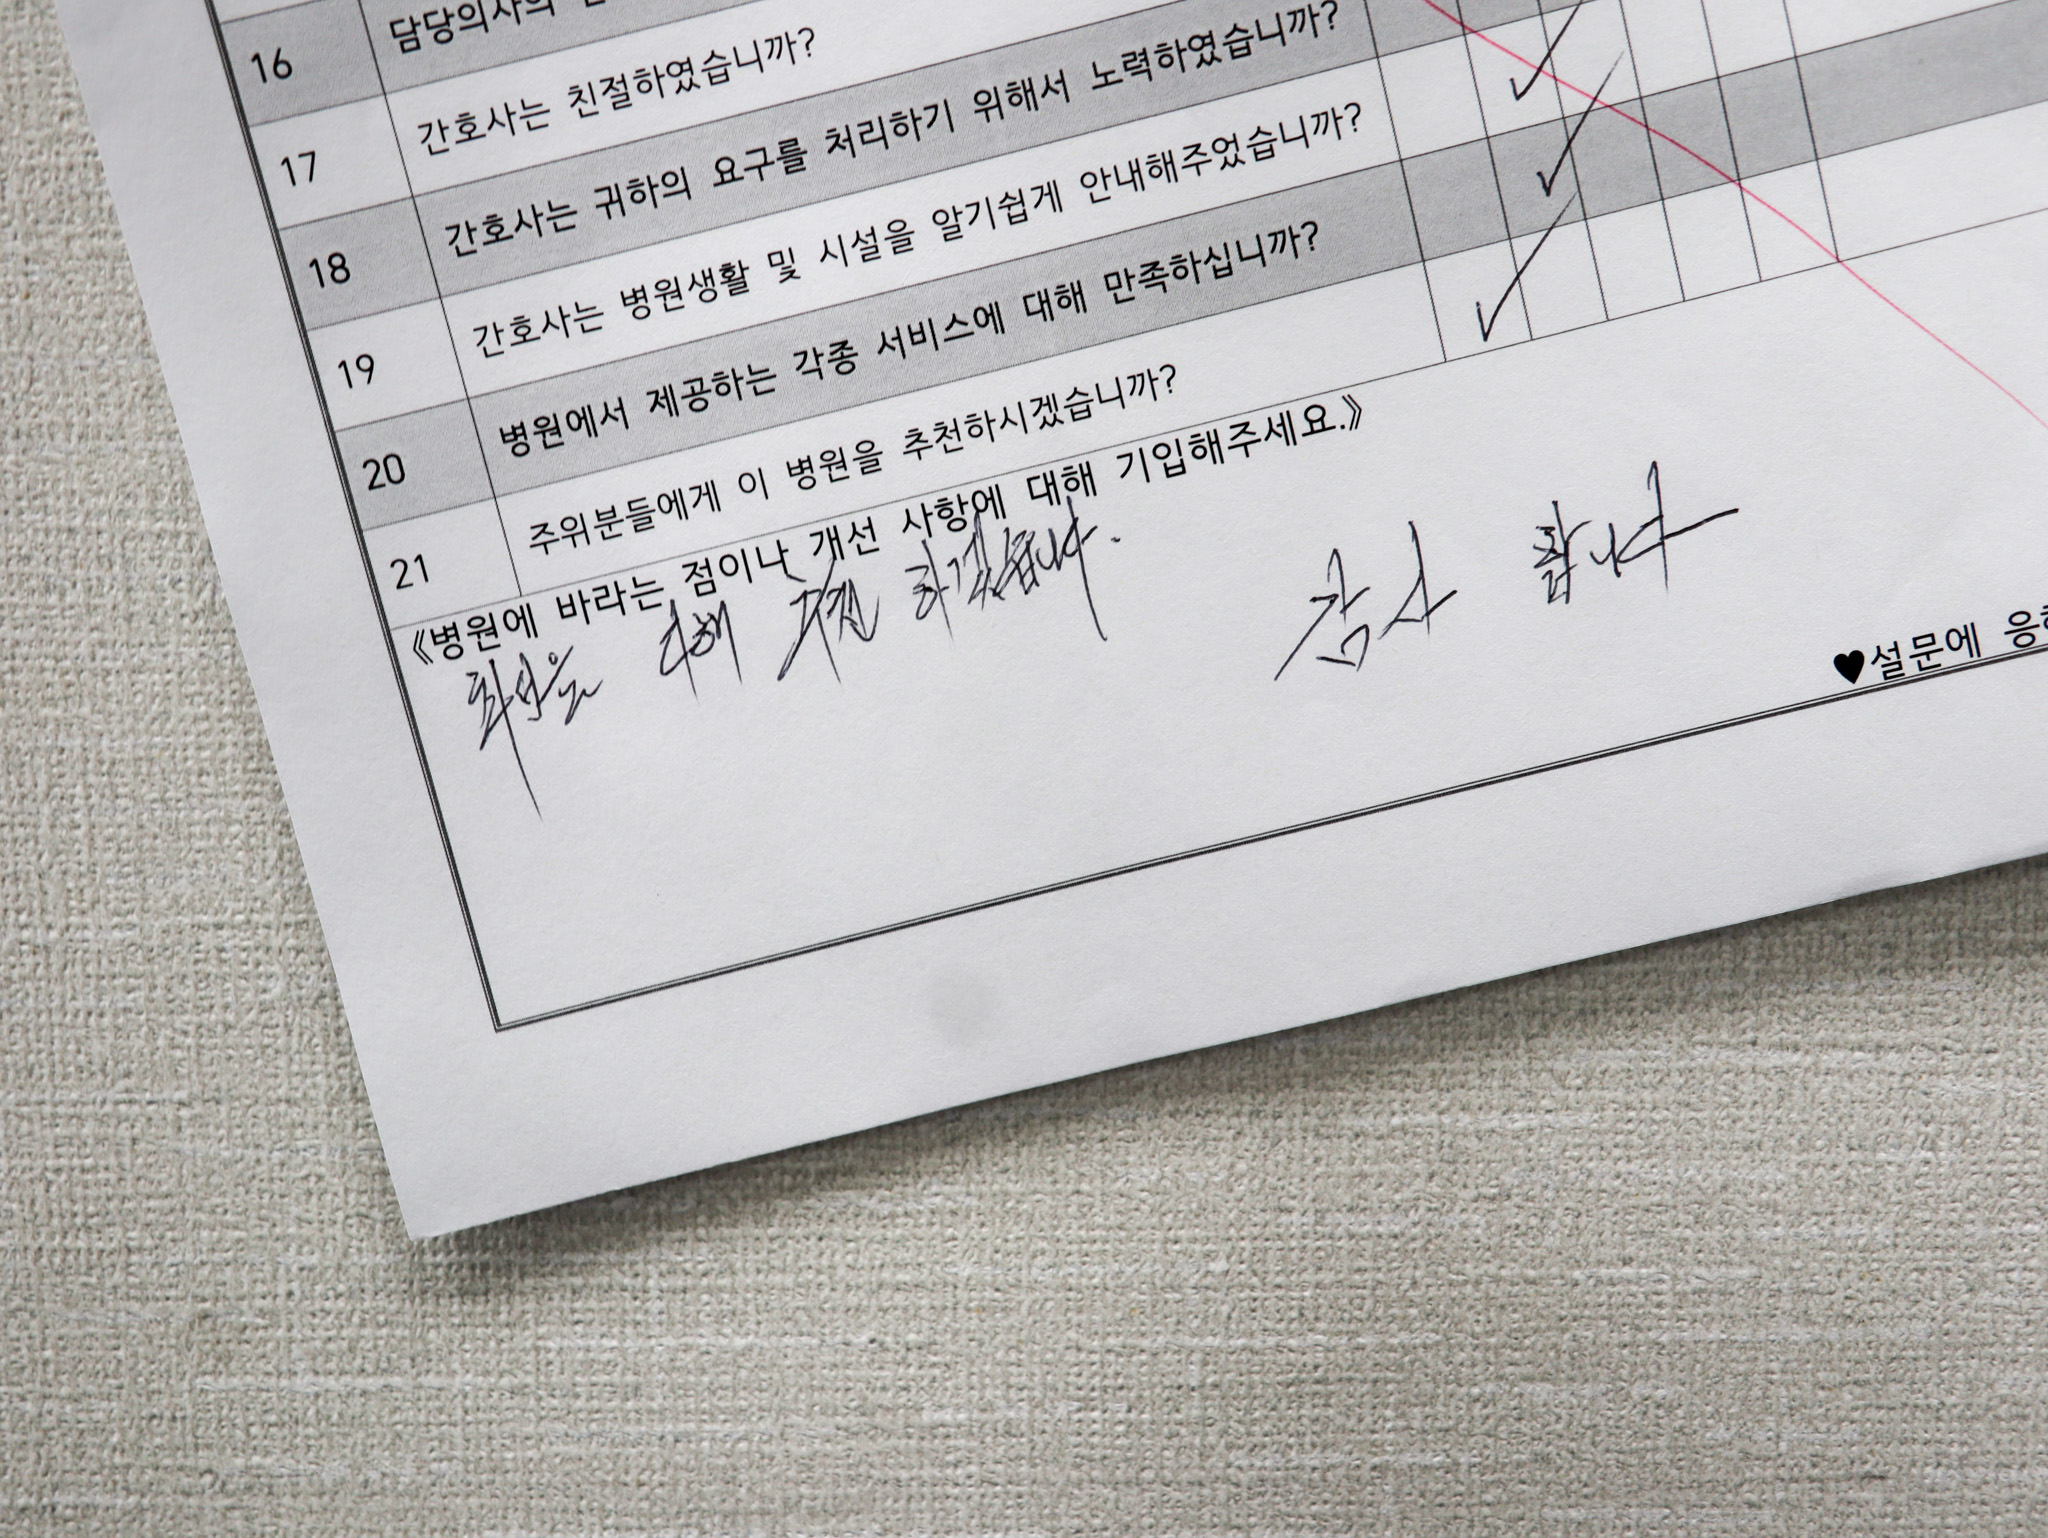 16 담당의사의
17 간호사는 친절하였습니까?
18 간호사는 귀하의 요구를 처리하기 위해서 노력하였습니까?
19 간호사는 병원생활 및 시설을 알기쉽게 안내해주었습니까?
20 병원에서 제공하는 각종 서비스에 대해 만족하십니까?
21 주위분들에게 이 병원을 추천하시겠습니까?
《병원에 바라는 점이나 개선 사항에 대해 기입해주세요.》
하겠습니다. 감사 합니다
♥설문에 응